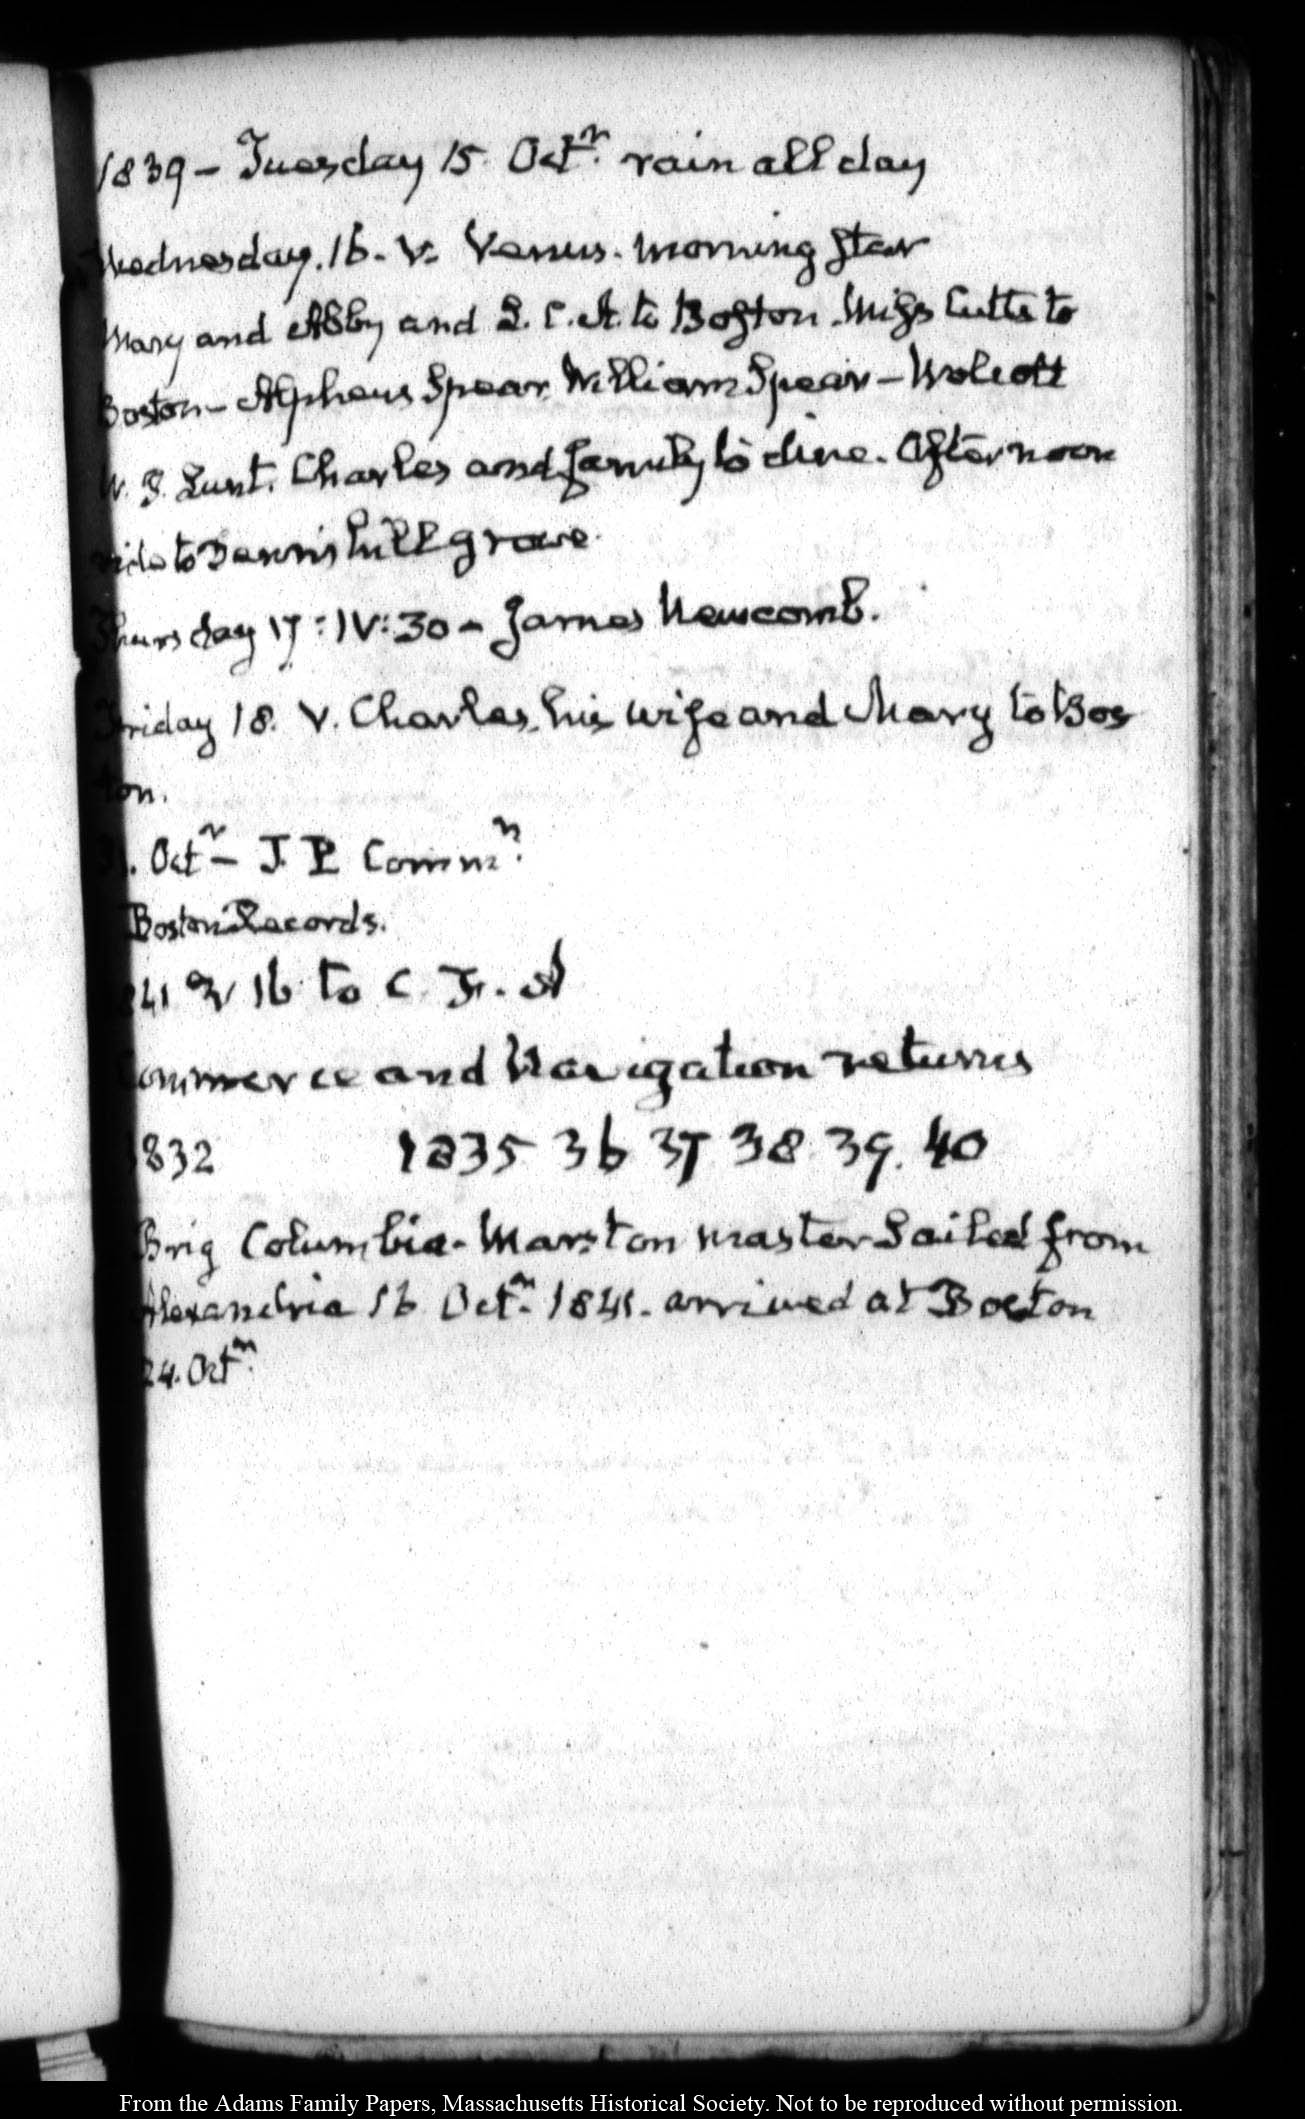 1839 – Tuesday 15. Octr. rain all day
Wednesday. 16. V. Venus. morning star
Mary and Abby and L. C. A. to Boston. Miss Cutts to
Boston – Alpheus Spear, William Spear – Wolcott
W. P. Lunt. Charles and family to dine. Afternoon
ride to Dennis hill grove.
Thursday 17: IV:30 – James Newcomb.
Friday 18. V. Charles, his wife and Mary to Bos
ton.
Octr – J. P. Commn.
Boston Records.
16 to C. F. A
Commerce and Navigation returns
1832 1835 36 37 38 39. 40
Brig Columbia – Marston master Sailed from
Alexandria 16 Octr. 1841. arrived at Boston
24. Octr.
From the Adams Family Papers, Massachusetts Historical Society. Not to be reproduced without permission.